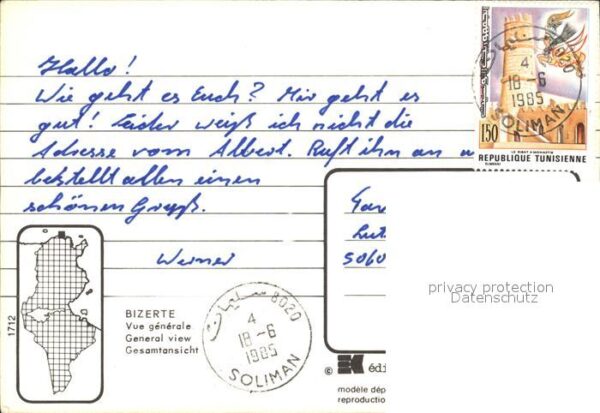 Hallo!
Wie geht es Euch? Mir geht es
gut! Leider weiß ich nicht die
Adresse vom Albert. Ruft ihn an u
bestellt allen einen
schönen Gruß.
Werner
150
REPUBLIQUE TUNISIENNE
8020
4
18-6
1985
SOLIMAN
Fam
Lut
5060
privacy protection
Datenschutz
1712
BIZERTE
Vue générale
General view
Gesamtansicht
سليمان 8020
4
18-6
1985
SOLIMAN
© édi
modèle dép
reproductio